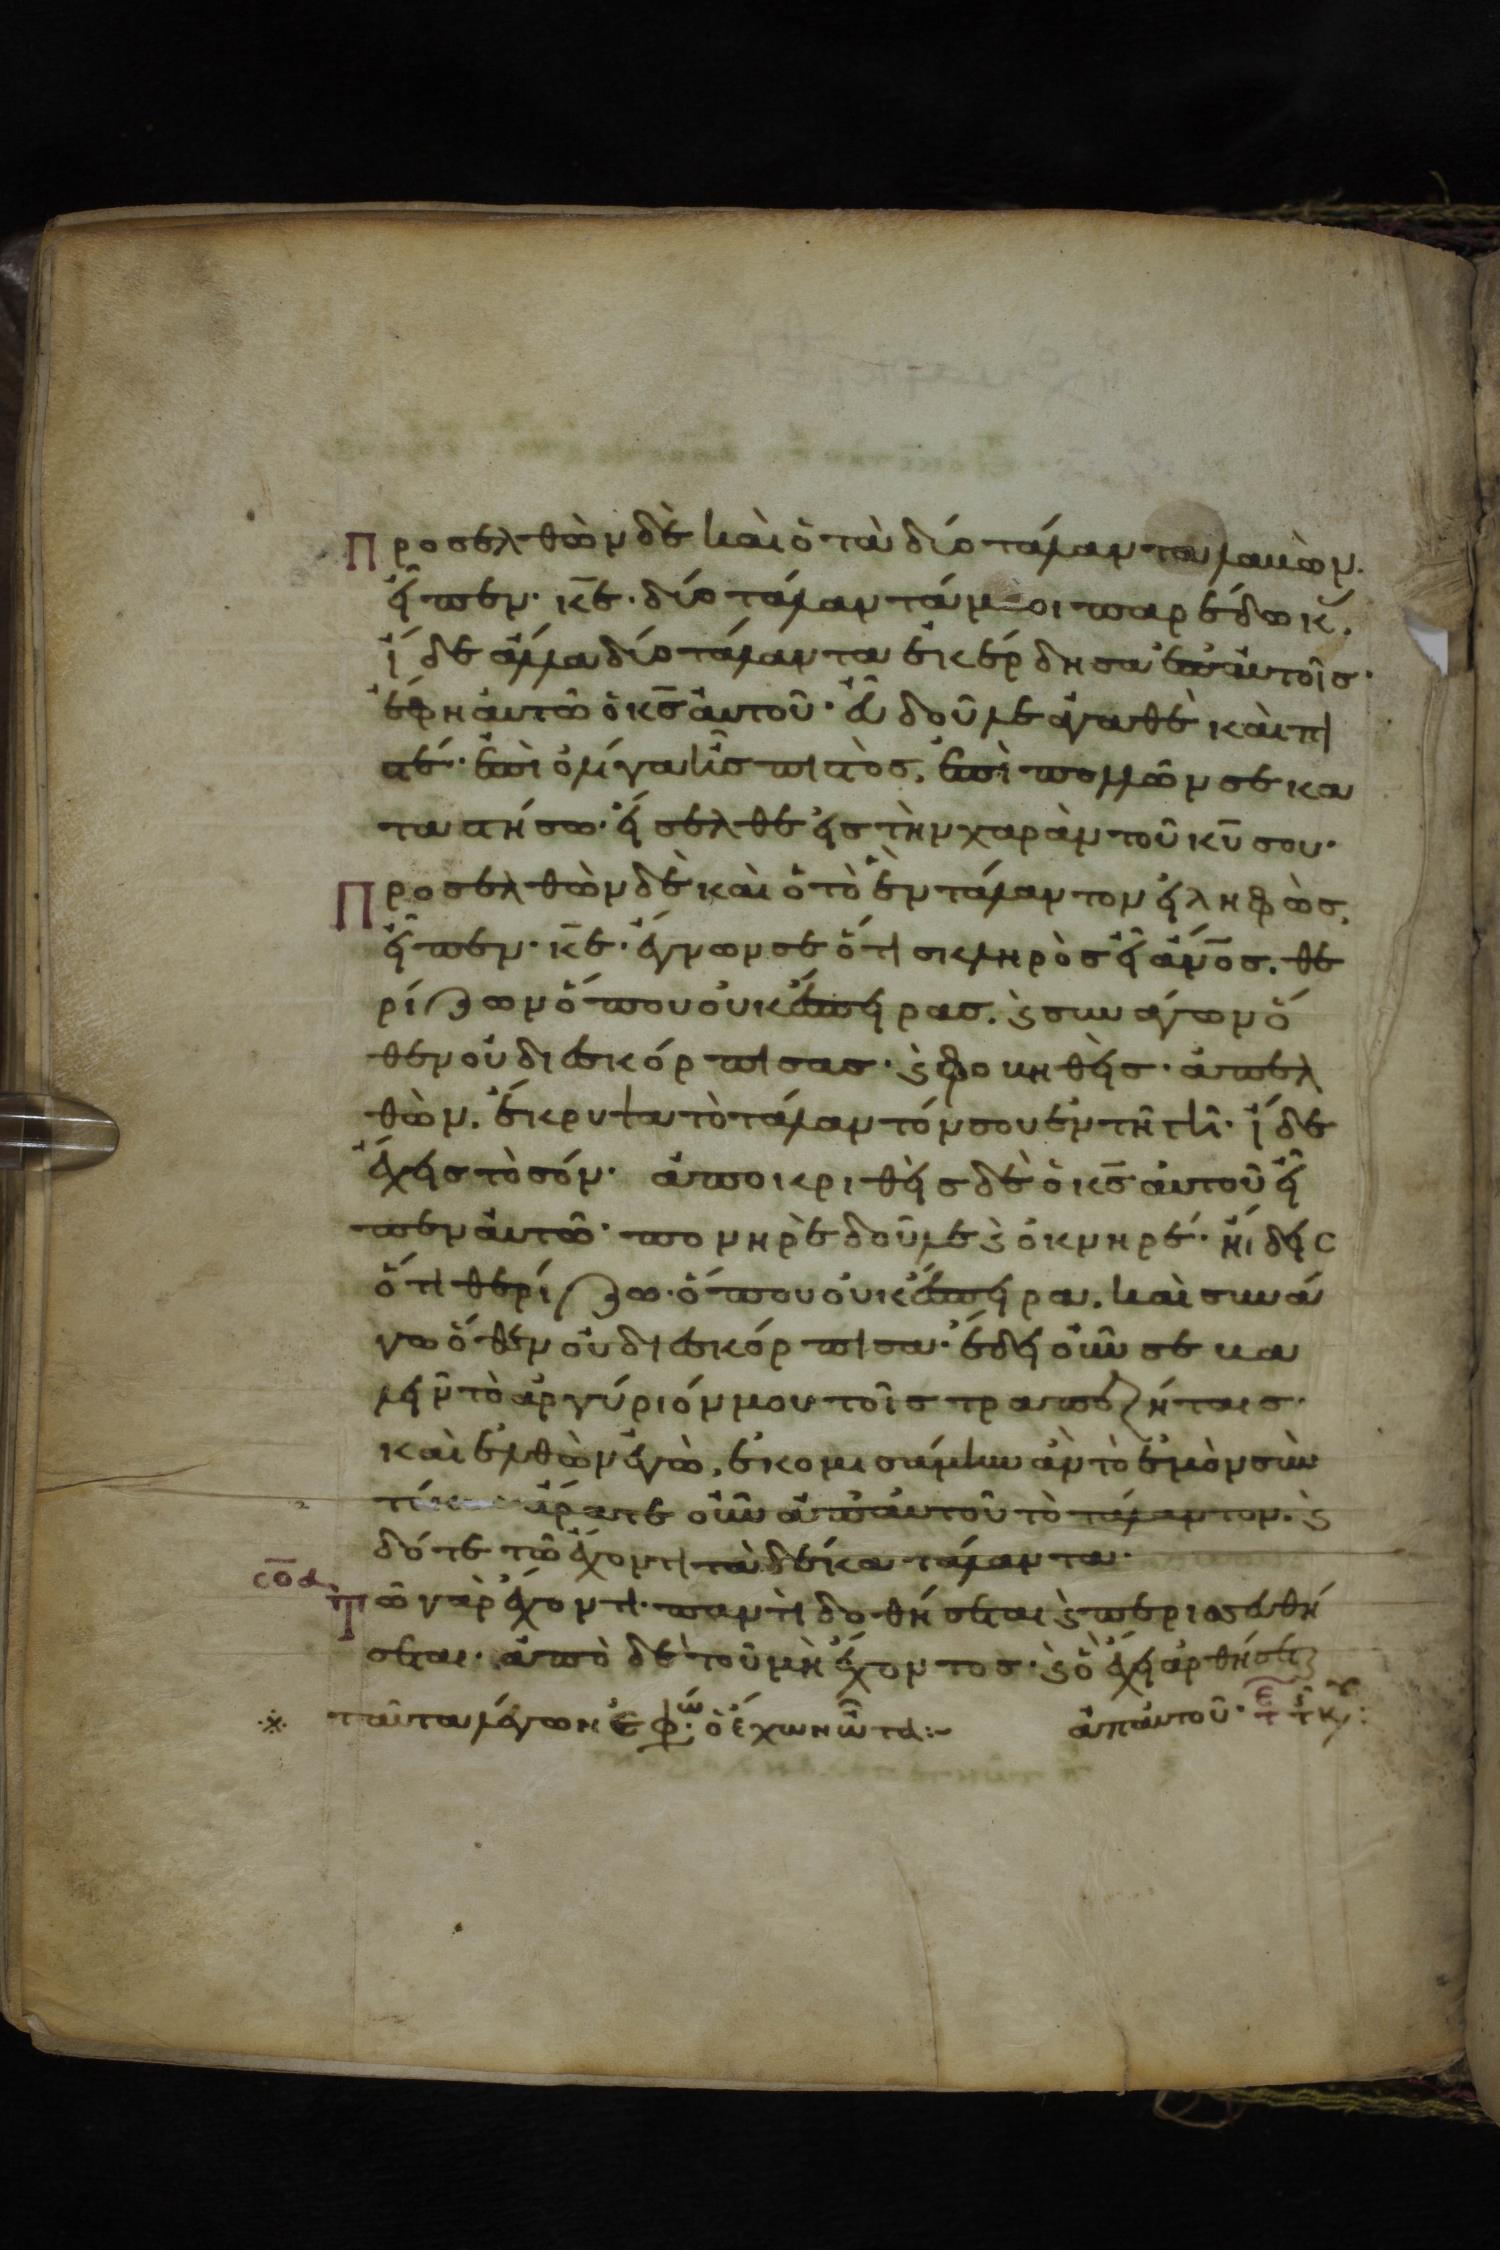 Προσελθὼν δὲ καὶ ὁ τὰ δύο τάλαντα λαβὼν.
εἶπεν· κ̅ε̅· δύο τάλαντά μοι παρέδωκ.
ἴδε ἄλλα δύο τάλαντα ἐκέρδησα ἐπ' αὐτοῖς·
ἔφη αὐτῶ ὁ κ̅ς̅ αὐτοῦ· εὖ δοῦλε ἀγαθὲ καὶ πι
στέ· ἐπὶ ὀλίγα ἦς πιστὸς, ἐπὶ πολλῶν σε κα
ταστήσω· εἴσελθε εἰς τὴν χαρὰν τοῦ κ̅υ̅ σου·
Προσελθὼν δὲ καὶ ὁ τὸ ἓν τάλαντον εἰληφὼς,
εἶπεν· κ̅ε̅· ἔγνων σε ὅτι σκληρὸς εἶ ἄν̅ο̅ς. θε
ρίζων ὅπου οὐκ ἔσπειρας. ϗ συνάγων ὅ
θεν οὐ διεσκόρπισας· ϗ φοβηθεὶς· ἀπελ
θὼν. ἔκρυψα τὸ τάλαντόν σου ἐν τῆ γῆ· ἴδε
ἔχεις τὸ σόν· ἀποκριθεὶς δὲ ὁ κ̅ς̅ αὐτοῦ εἶ
πεν αὐτῶ· πονηρὲ δοῦλε ϗ ὀκνηρέ· ἤιδεις
ὅτι θερίζω· ὅπου οὐκ ἔσπειρα. καὶ συνά
γω ὅθεν οὐ διεσκόρπισα· ἔδει οὖν σε βα
λεῖν τὸ ἀργύριόν μου τοῖς τραπεζήταις·
καὶ ἐλθὼν ἐγὼ, ἐκομισάμην ἂν τὸ ἐμὸν σὺν
ἄρατε οὖν ἀπ' αὐτοῦ τὸ τάλαντον. ϗ
δότε τῶ ἔχοντι τὰ δέκα τάλαντα·
σ̅ο̅α̅
Τῶ γὰρ ἔχοντι· παντὶ δοθήσεται ϗ περισσευθή
σεται· ἀπὸ δὲ τοῦ μὴ ἔχοντος· ϗ ὃ ἔχει ἀρθήσεται
ταῦτα λέγων ἐφώ· ὁ ἔχων ὦτα:~ ἀπ' αὐτοῦ·